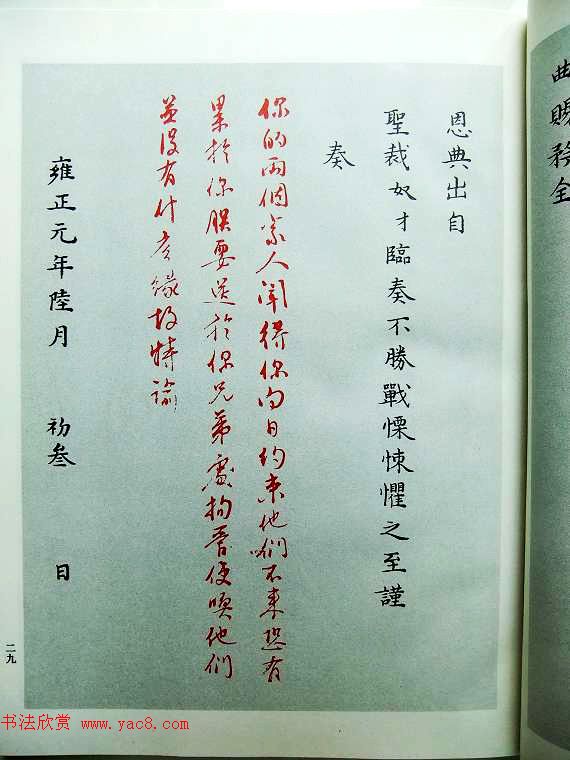 曲賜矜全
恩典出自
聖裁奴才臨奏不勝戰慄悚懼之至謹
奏
你的兩個家人聞得你向日約束他們不来恐有
累於你朕要送於你兄弟處拘管使喚他們
並沒有什麼緣故特諭
雍正元年陸月 初叁 日
二九
书法欣赏 www.yac8.com